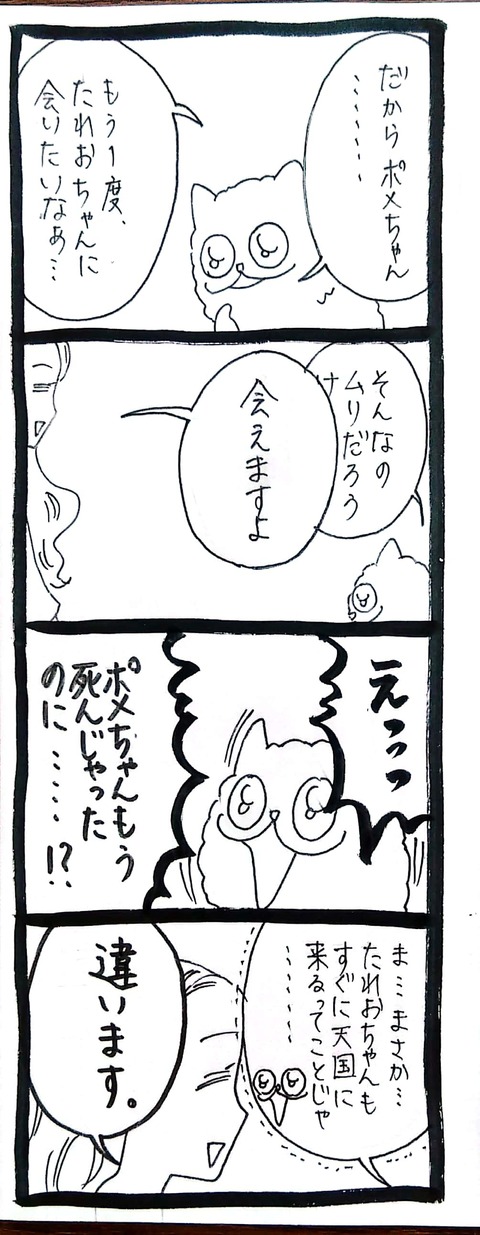 だからポメちゃん
………
もう1度、
たれおちゃんに
会いたいなぁ…
そんなの
ムリだろう
け
会えますよ
えっっっ
ポメちゃんもう
死んじゃった
のに……!?
ま…まさか…
たれおちゃんも
すぐに天国に
来るってことじゃ
………
違います。